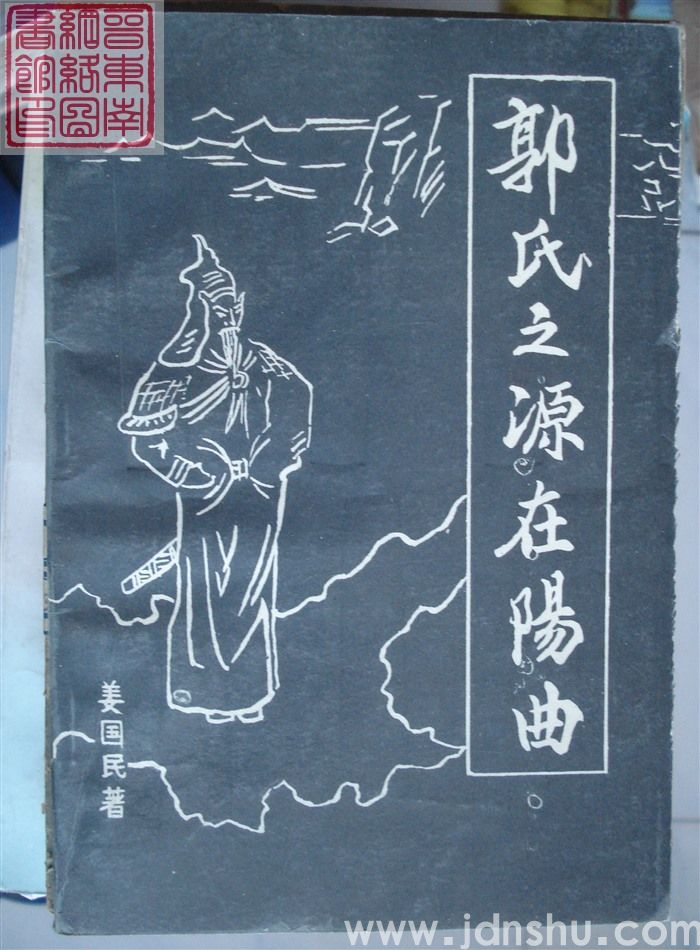 晋東南
網絡圖
書館自
郭氏之源在陽曲
姜国民著
www.jdnshu.com